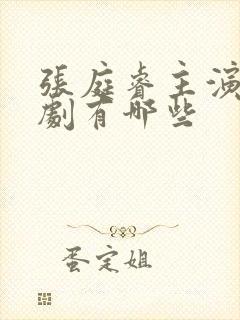 張庭睿主演
劇有哪些
蛋定姐